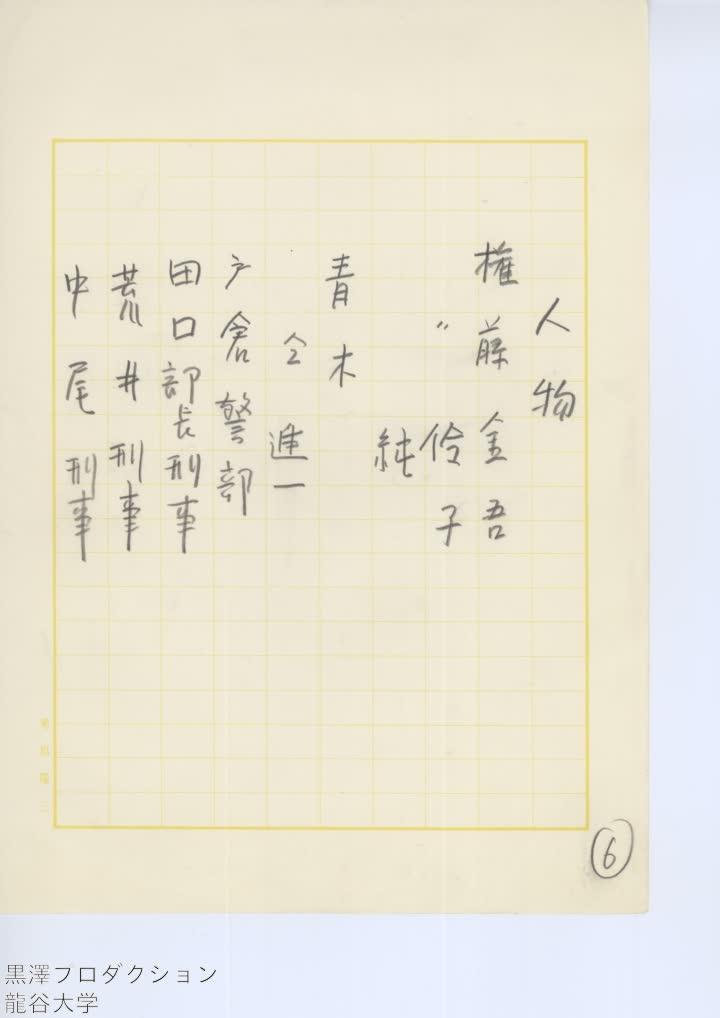 人物
権藤金吾
〃 伶子
純
青木
仝 進一
戸倉警部
田口部長刑事
荒井刑事
中尾刑事
6
黒澤プロダクション
龍谷大学